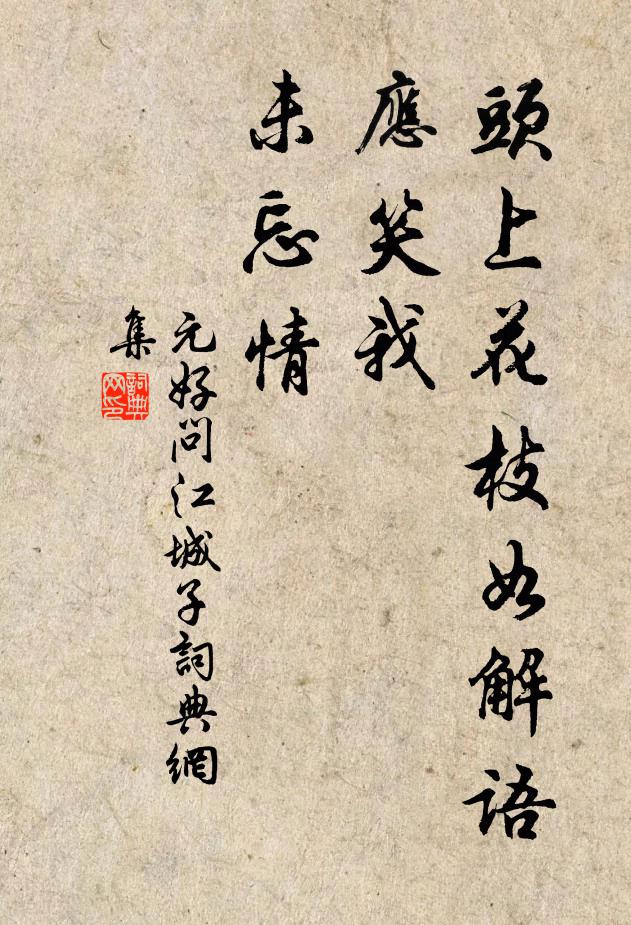 頭上花枝如解語
應笑我
未忘情
元好問江城子詞典網
集
詞典
网印